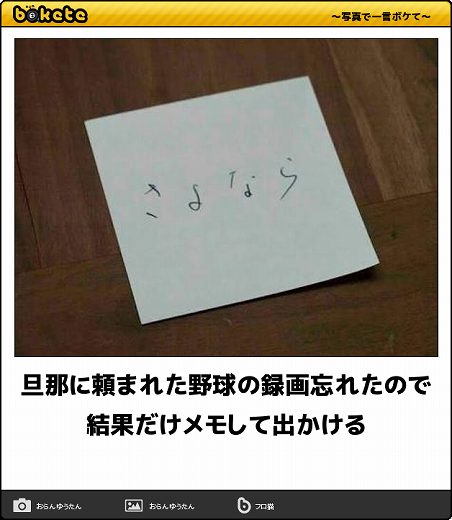 bokete
～写真で一言ボケて～
さよなら
旦那に頼まれた野球の録画忘れたので
結果だけメモして出かける
おらんゆうたん
おらんゆうたん
フロ猫